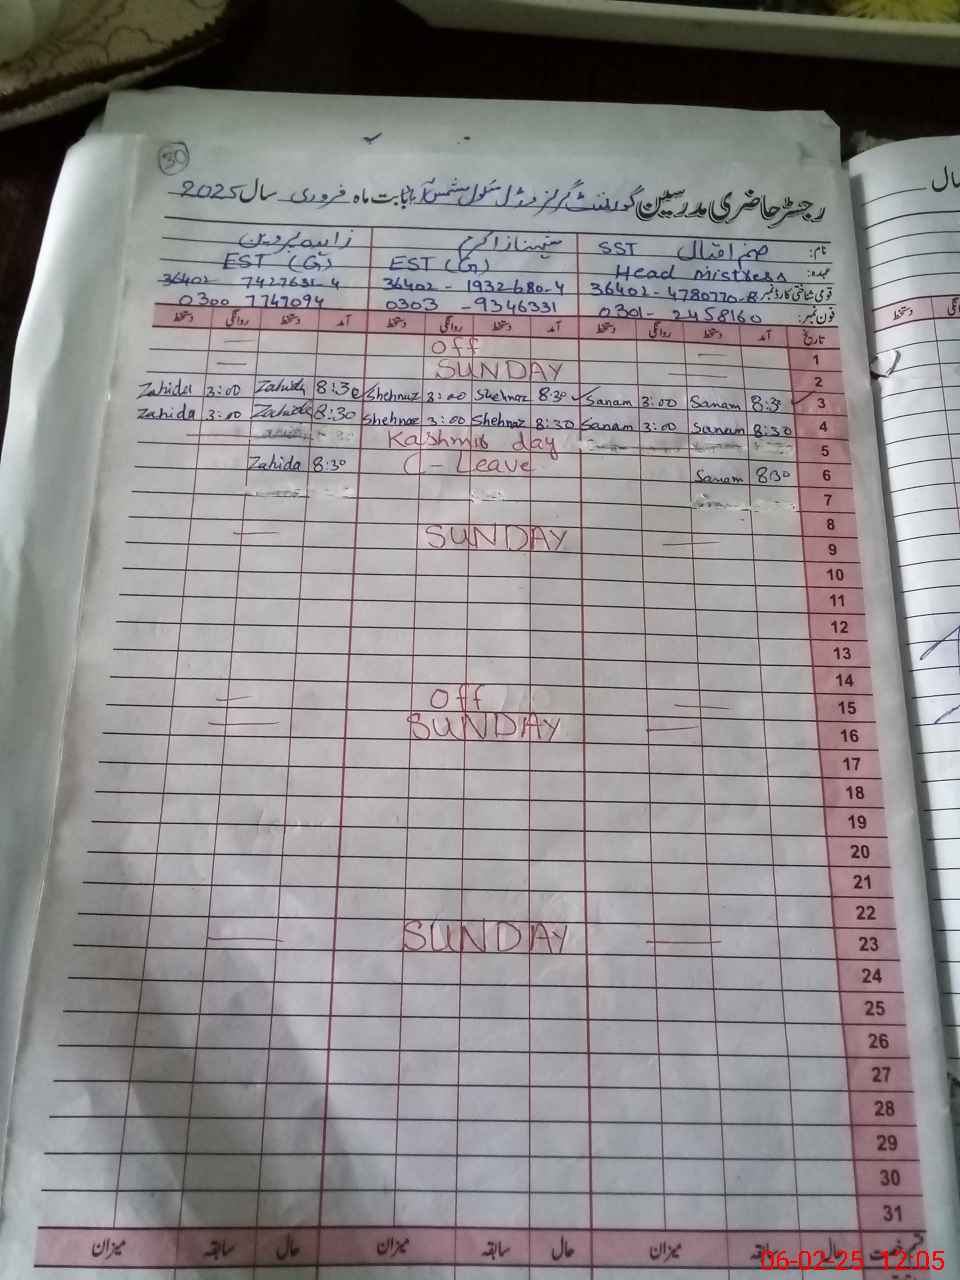 30
رجسٹر حاضری مدرسین گورنمنٹ گرلز مڈل سکول شمس بابت ماہ فروری سال 2025
نام: صنم اقبال SST شہناز اکرم زاہدہ پروین
عہدہ: Head Mistress EST (G) EST (G)
قومی شناختی کارڈ نمبر 36402-4780770-8 36402-1932680-4 36402 7427631-4
فون نمبر: 0301-2458160 0303-9346331 0300 7747094
تاریخ آمد دستخط روانگی دستخط آمد دستخط روانگی دستخط آمد دستخط روانگی دستخط
Off 1
SUNDAY 2
Zahida 3:00 Zahida 8:30 Shehnaz 3:00 Shehnaz 8:30 Sanam 3:00 Sanam 8:30 3
Zahida 3:00 Zahida 8:30 Shehnaz 3:00 Shehnaz 8:30 Sanam 3:00 Sanam 8:30 4
Kashmir day 5
Zahida 8:30 C-Leave Sanam 8:30 6
7
8
SUNDAY 9
10
11
12
13
14
Off 15
SUNDAY 16
17
18
19
20
21
22
SUNDAY 23
24
25
26
27
28
29
30
31
حال سابقہ میزان حال سابقہ میزان حال سابقہ میزان
ال
دستخط
06-02-25 12:05